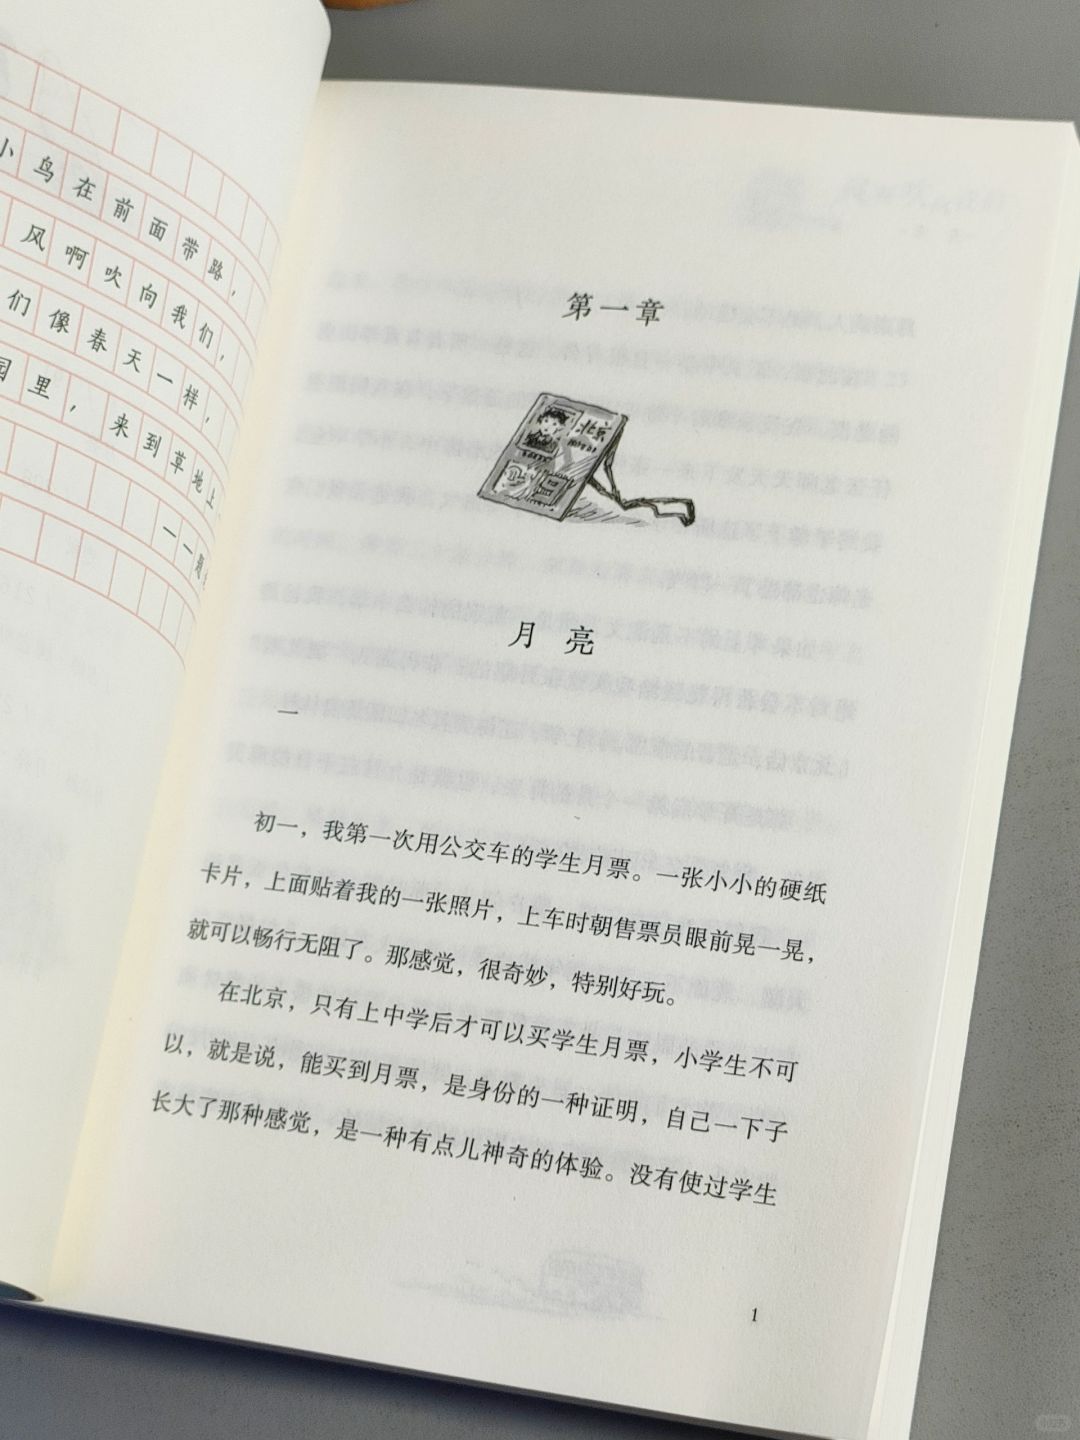 小鸟在前面带路，
风啊吹向我们，
们像春天一样，
园里，来到草地上
——题
第一章
北京
月亮
一
初一，我第一次用公交车的学生月票。一张小小的硬纸
卡片，上面贴着我的一张照片，上车时朝售票员眼前晃一晃，
就可以畅行无阻了。那感觉，很奇妙，特别好玩。
在北京，只有上中学后才可以买学生月票，小学生不可
以，就是说，能买到月票，是身份的一种证明，自己一下子
长大了那种感觉，是一种有点儿神奇的体验。没有使过学生
1